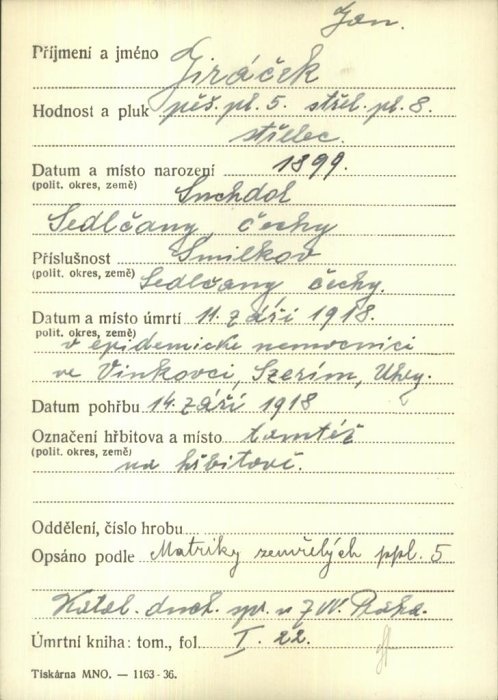 Jan.
Příjmení a jméno Jiráček
Hodnost a pluk pěš. pl. 5. střel. pl. 8.
střelec.
Datum a místo narození 1899.
(polit. okres, země) Suchdol
Sedlčany, čechy
Příslušnost Smilkov
(polit. okres, země) Sedlčany čechy.
Datum a místo úmrtí 11. září 1918.
polit. okres, země) v epidemické nemocnici
ve Vinkovci, Szerím, Uhry.
Datum pohřbu 14. září 1918
Označení hřbitova a místo tamtéž
(polit. okres, země) na hřbitově.
Oddělení, číslo hrobu
Opsáno podle Matriky zemřelých ppl. 5
Katol. duch. spr. u ZVV. Praha.
Úmrtní kniha: tom., fol. I. 22.
Tiskárna MNO. — 1163-36.